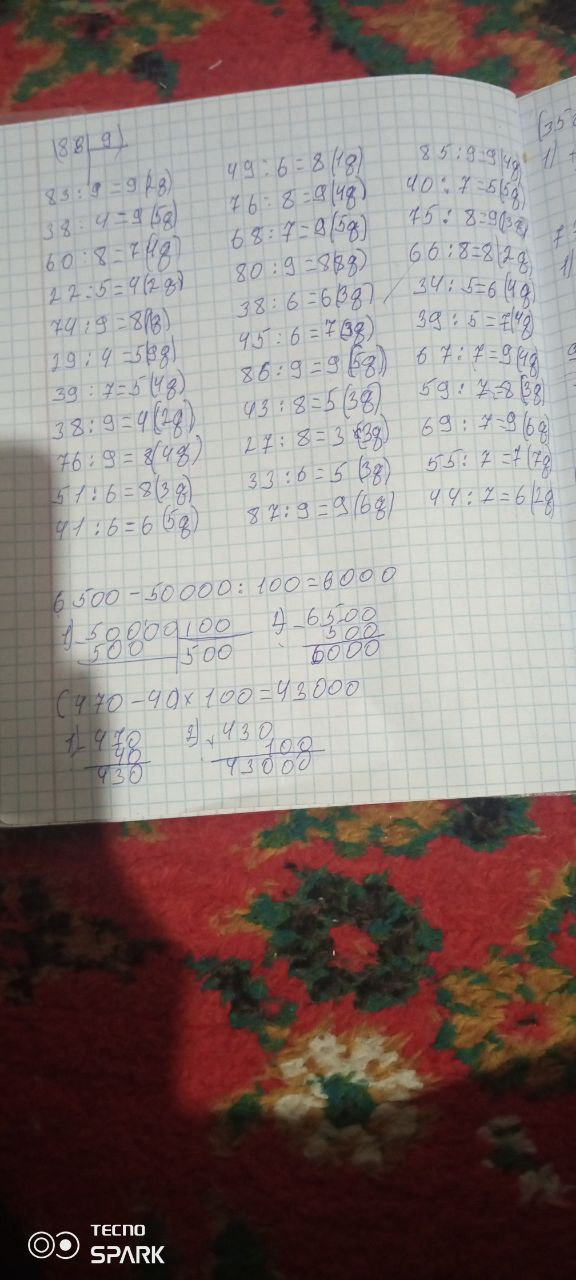 88 9
83:9=9(2q)
38:4=9(5q)
60:8=7(4q)
22:5=4(2q)
74:9=8(q)
29:4=5(9q)
39:7=5(4q)
38:9=4(2q)
76:9=8(4q)
51:6=8(3q)
41:6=6(5q)
49:6=8(1q)
76:8=9(4q)
68:7=9(5q)
80:9=8(8q)
38:6=6(3q)
45:6=7(3q)
86:9=9(5q)
43:8=5(3q)
27:8=3(3q)
33:6=5(3q)
87:9=9(6q)
85:9=9(4q)
40:7=5(5q)
75:8=9(3q)
66:8=8(2q)
34:5=6(4q)
39:5=7(4q)
67:7=9(4q)
59:7=8(3q)
69:7=9(6q)
55:7=7(7q)
44:7=6(2q)
6500-50000:100=6000
1) 50000 100
500 500
2) -6500
500
6000
(470-40)×100=43000
1) -470
40
430
2) ×430
100
43000
TECNO
SPARK